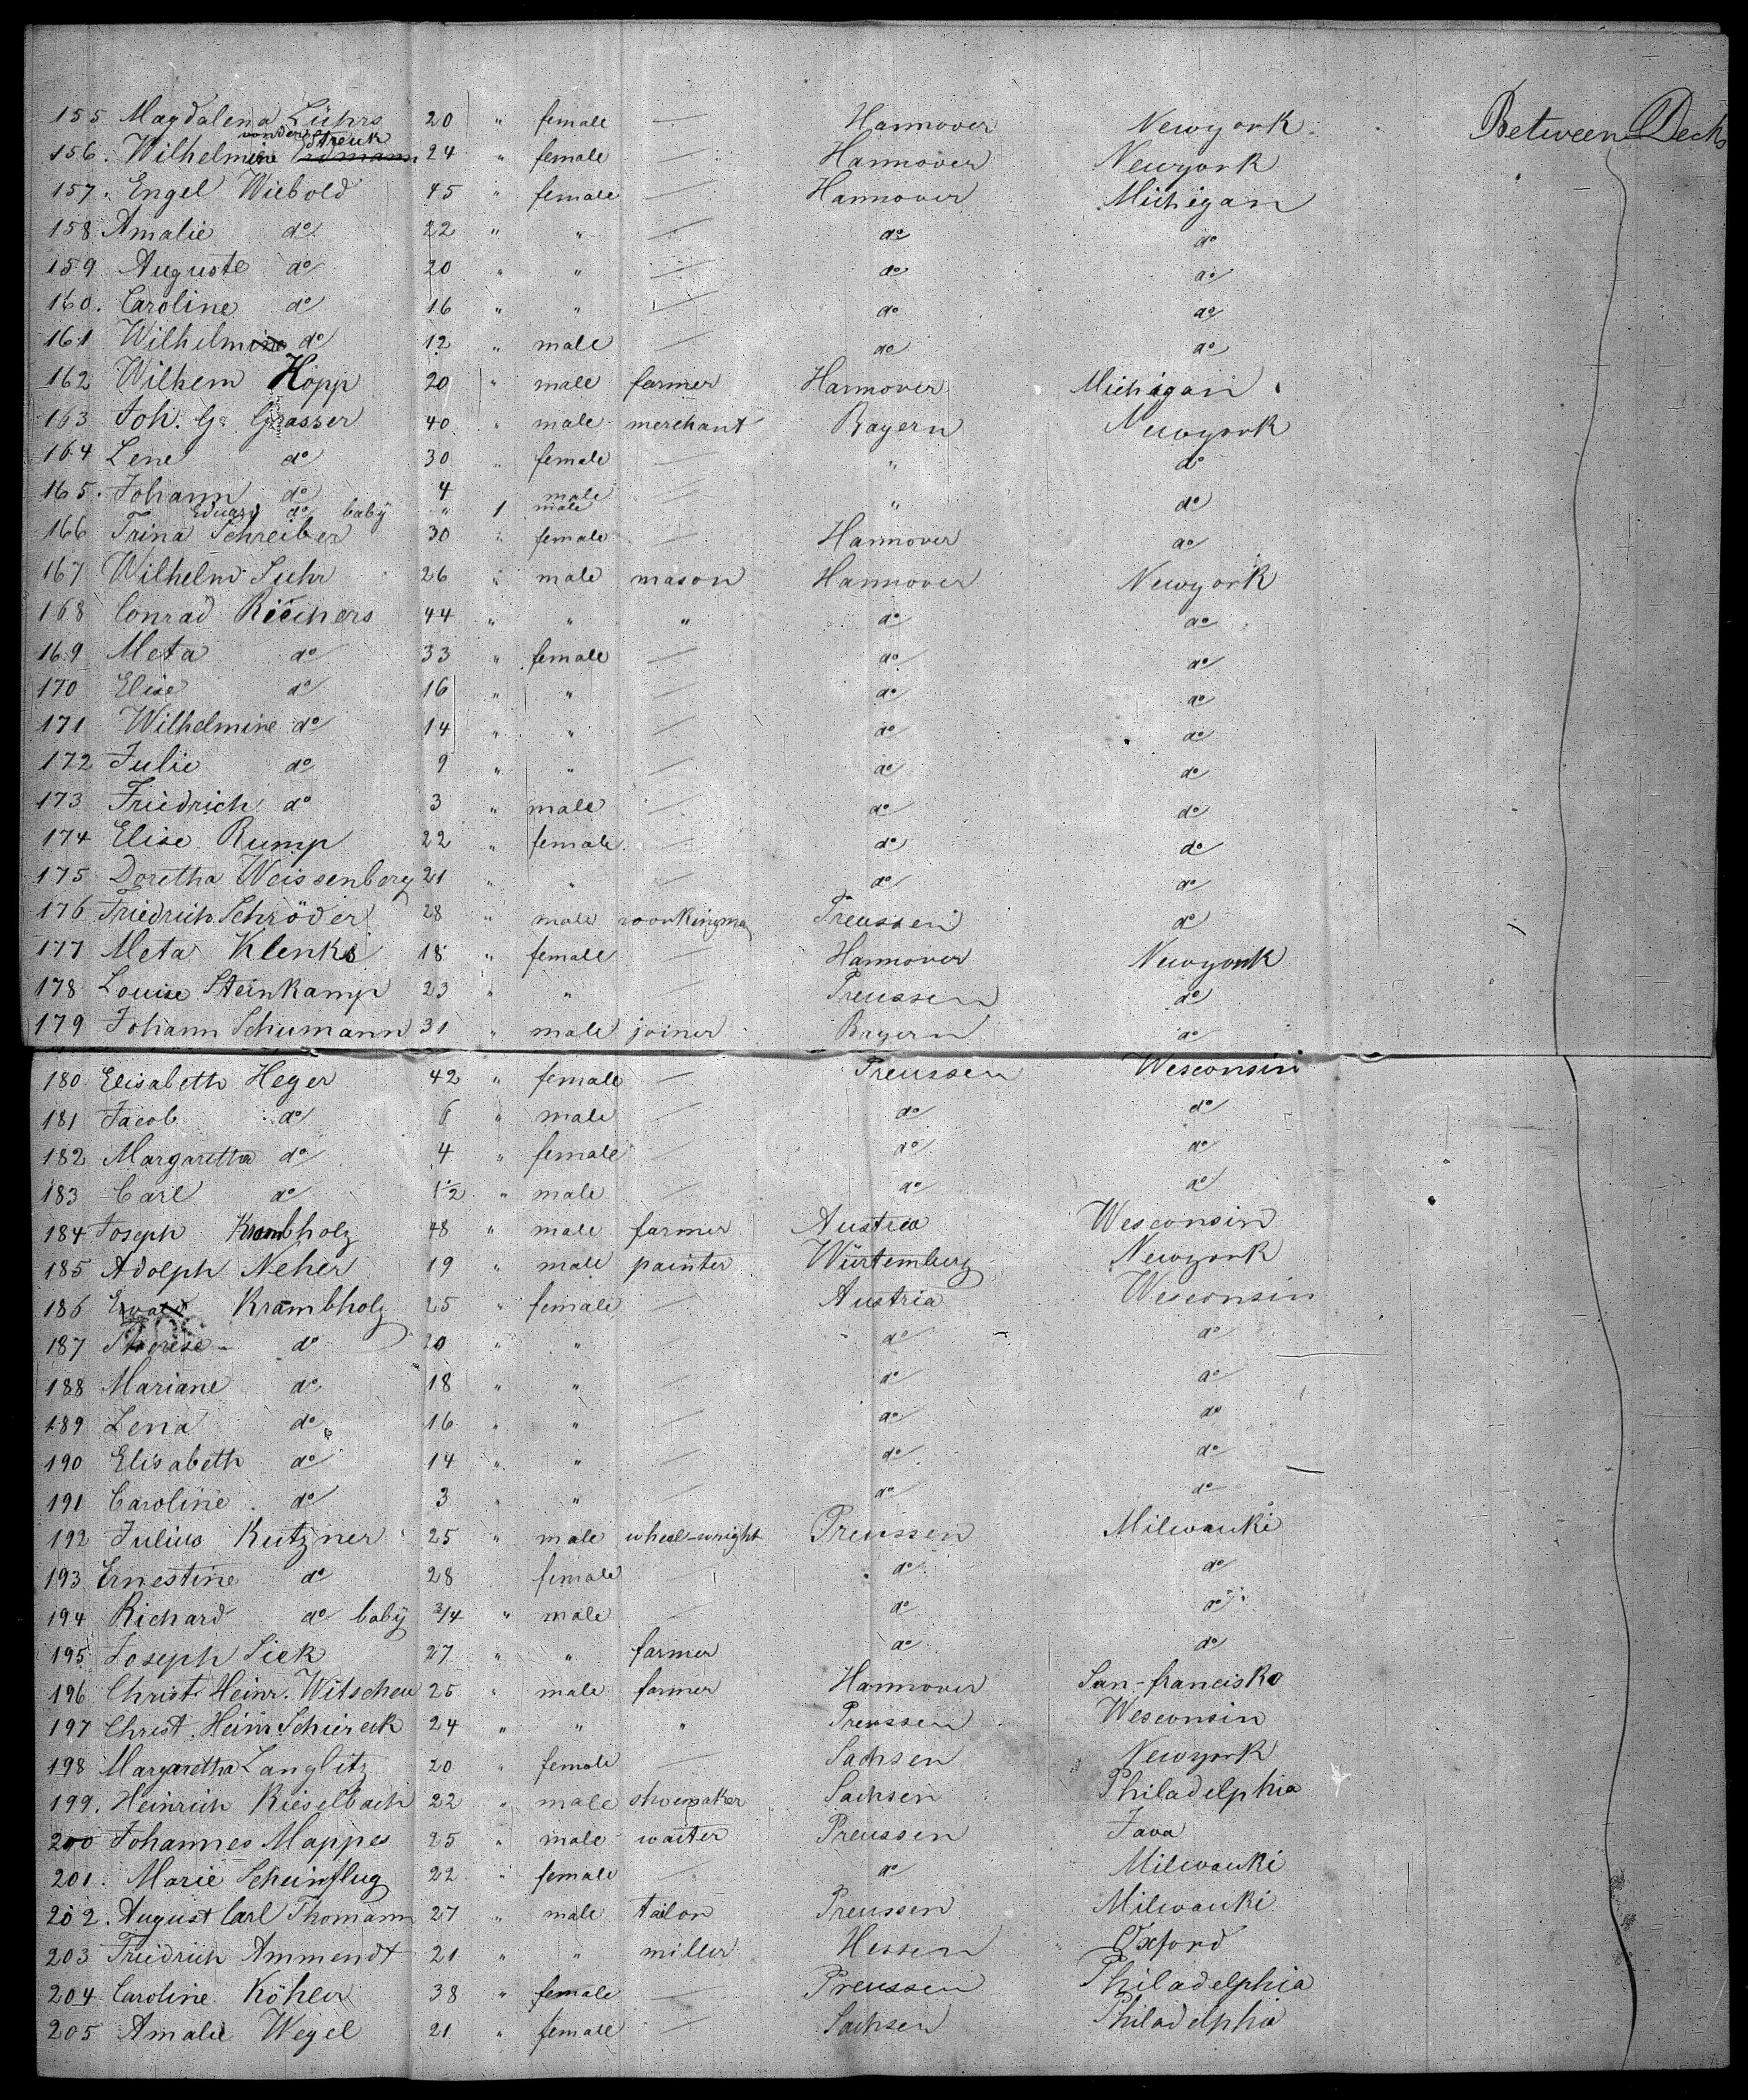 155 Magdalena Lührs 20 " female — Hannover Newyork. Between Decks
vonder Streuk
156. Wilhelmine 24 " female — Hannover Newyork
157. Engel Wiebold 45 " female — Hannover Michigan
158 Amalie do 22 " " — do do
159 Auguste do 20 " " — do do
160. Caroline do 16 " " — do do
161 Wilhelm do 12 " male — do do
162 Wilhem Höpp 20 " male farmer Hannover Michigan
163 Joh. G. Grasser 40 " male merchant Bayern Newyork
164 Lene do 30 " female — " do
165. Johann do 4 male — " do
Eduard do baby " 1 male
166 Trina Schreiber 30 " female — Hannover do
167 Wilhelm Suhr 26 " male mason Hannover Newyork
168 Conrad Riechers 44 " " " do do
169 Meta do 33 " female — do do
170 Elise do 16 " " — do do
171 Wilhelmine do 14 " " — do do
172 Julie do 9 " " — do do
173 Friedrich do 3 " male — do do
174 Elise Rump 22 " female — do do
175 Doretha Weissenberg 21 " " — do do
176 Friedrich Schröder 28 " male workingma Preussen do
177 Meta Klenke 18 " female — Hannover Newyork
178 Louise Steinkamp 23 " " — Preussen do
179 Johann Schumann 31 " male joiner Bayern do
180 Elisabeth Heger 42 " female — Preussen Wesconsin
181 Jacob do 6 " male — do do
182 Margaretha do 4 " female — do do
183 Carl do 1½ " male — do do
184 Joseph Krambholz 48 " male farmer Austria Wesconsin
185 Adolph Neher 19 " male painter Würtemberg Newyork
186 Krambholz 25 " female — Austria Wesconsin
187 Therese do 20 " " — do do
188 Mariane do 18 " " — do do
189 Lena do 16 " " — do do
190 Elisabeth do 14 " " — do do
191 Caroline do 3 " " — do do
192 Julius Kutzner 25 " male wheel-wright Preussen Milwauki
193 Ernestine do 28 female — do do
194 Richard do baby 3/4 " male — do do
195 Joseph Siek 27 " " farmer do do
196 Christ. Heinr. Witschen 25 " male farmer Hannover San-francisko
197 Christ. Heinr. Schiereck 24 " " " Preussen Wesconsin
198 Margaretha Langlitz 20 " female — Sachsen Newyork
199. Heinrich Kieselbach 22 " male shoemaker Sachsen Philadelphia
200 Johannes Mappes 25 " male waiter Preussen Java
201. Marie Scheinflug 22 " female — do Milwauki
202. August Carl Thomann 27 " male tailor Preussen Milwauki
203 Friedrich Ammendt 21 " " miller Hessen Oxford
204 Caroline Köhler 38 " female — Preussen Philadelphia
205 Amalie Wegel 21 " female — Sachsen Philadelphia